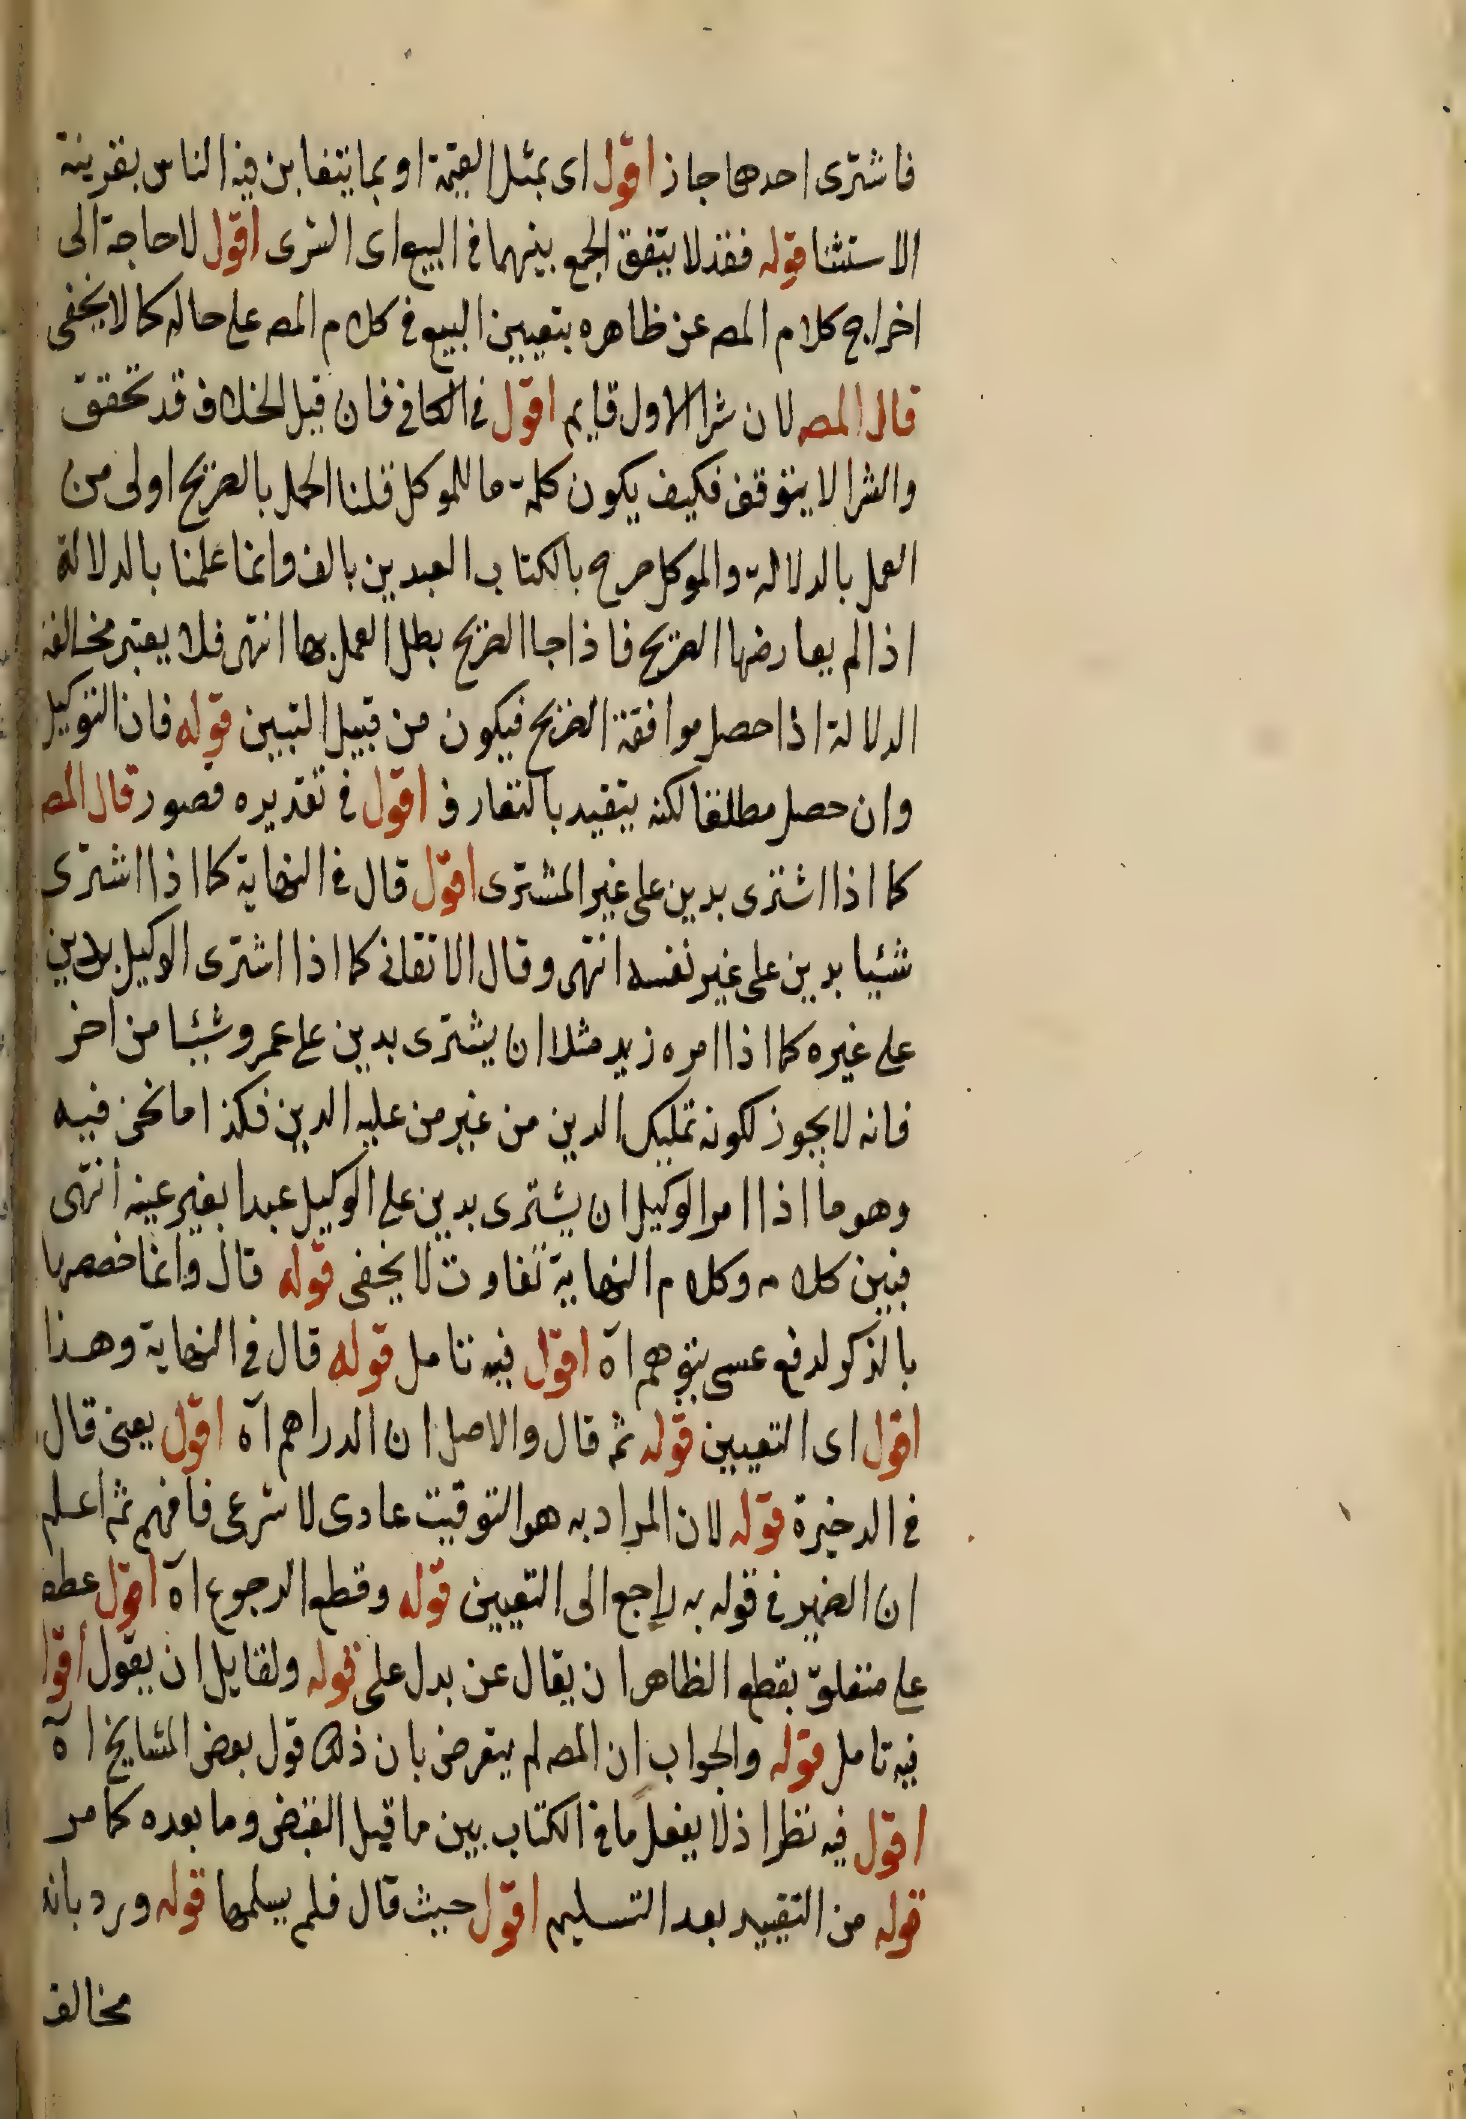 فاشترى احدها جاز اقول اى بمثل القيمة او بما يتغابن فيه الناس بقرينة
الاستثنا قوله فقد لا يتفق الجمع بينهما فى البيع اى الشرى اقول لا حاجة الى
اخراج كلام المصه عن ظاهره بتعيين البيع فى كلام المصه على حاله كما لا يخفى
قال المصه لان شرا الاول قايم اقول فى الكافى فان قيل الخلاف قد تحقق
والشرا لا يتوقف فكيف يكون كله ما للموكل قلنا الحمل بالصريح اولى من
العمل بالدلالة والموكل صرح بالكتاب العبدين بالف وانما علمنا بالدلالة
اذا لم يعارضها الصريح فاذا جا الصريح بطل العمل بها انتهى فلا يعتبر مخالفة
الدلالة اذا حصل موافقة الصريح فيكون من قبيل التبيين قوله فان التوكيل
وان حصل مطلقا لكنه يتقيد بالتعارف اقول فى تقديره قصور قال المصه
كما اذا اشترى بدين على غير المشترى اقول قال فى النهاية كما اذا اشترى
شئيا بدين على غير نفسه انتهى وقال الاتقانى كما اذا اشترى الوكيل بدين
على غيره كما اذا امره زيد مثلا ان يشترى بدين على عمرو شيئا من اخر
فانه لا يجوز لكونه تمليك الدين من غير من عليه الدين فكذا ما نحن فيه
وهو ما اذا امر الوكيل ان يشترى بدين على الوكيل عبدا بغير عينه انتهى
فبين كلامه وكلام النهاية تفاوت لا يخفى قوله قال وانما خصصها
بالذكر لدفع عسى يتوهم اه اقول فيه تامل قوله قال فى النهاية وهذا
اقول اى التعيين قوله ثم قال والاصل ان الدراهم اه اقول يعنى قال
فى الدخيرة قوله لان المراد به هو التوقيت عادى لا شرعى فافهم ثم اعلم
ان الضمير فى قوله به راجع الى التعيين قوله وقطع الرجوع اه اقول عطف
على متعلق بقطع الظاهر ان يقال عن بدل على قوله ولقايل ان يقول اقول
فيه تامل قوله والجواب ان المصه لم يتعرض بان ذلك قول بعض المشايخ اه
اقول فيه نظر اذ لا يفصل ما فى الكتاب بين ما قبل القبض وما بعده كما مر
قوله من التقييد بعد التسليم اقول حيث قال فلم يسلمها قوله ورد بانه
مخالف